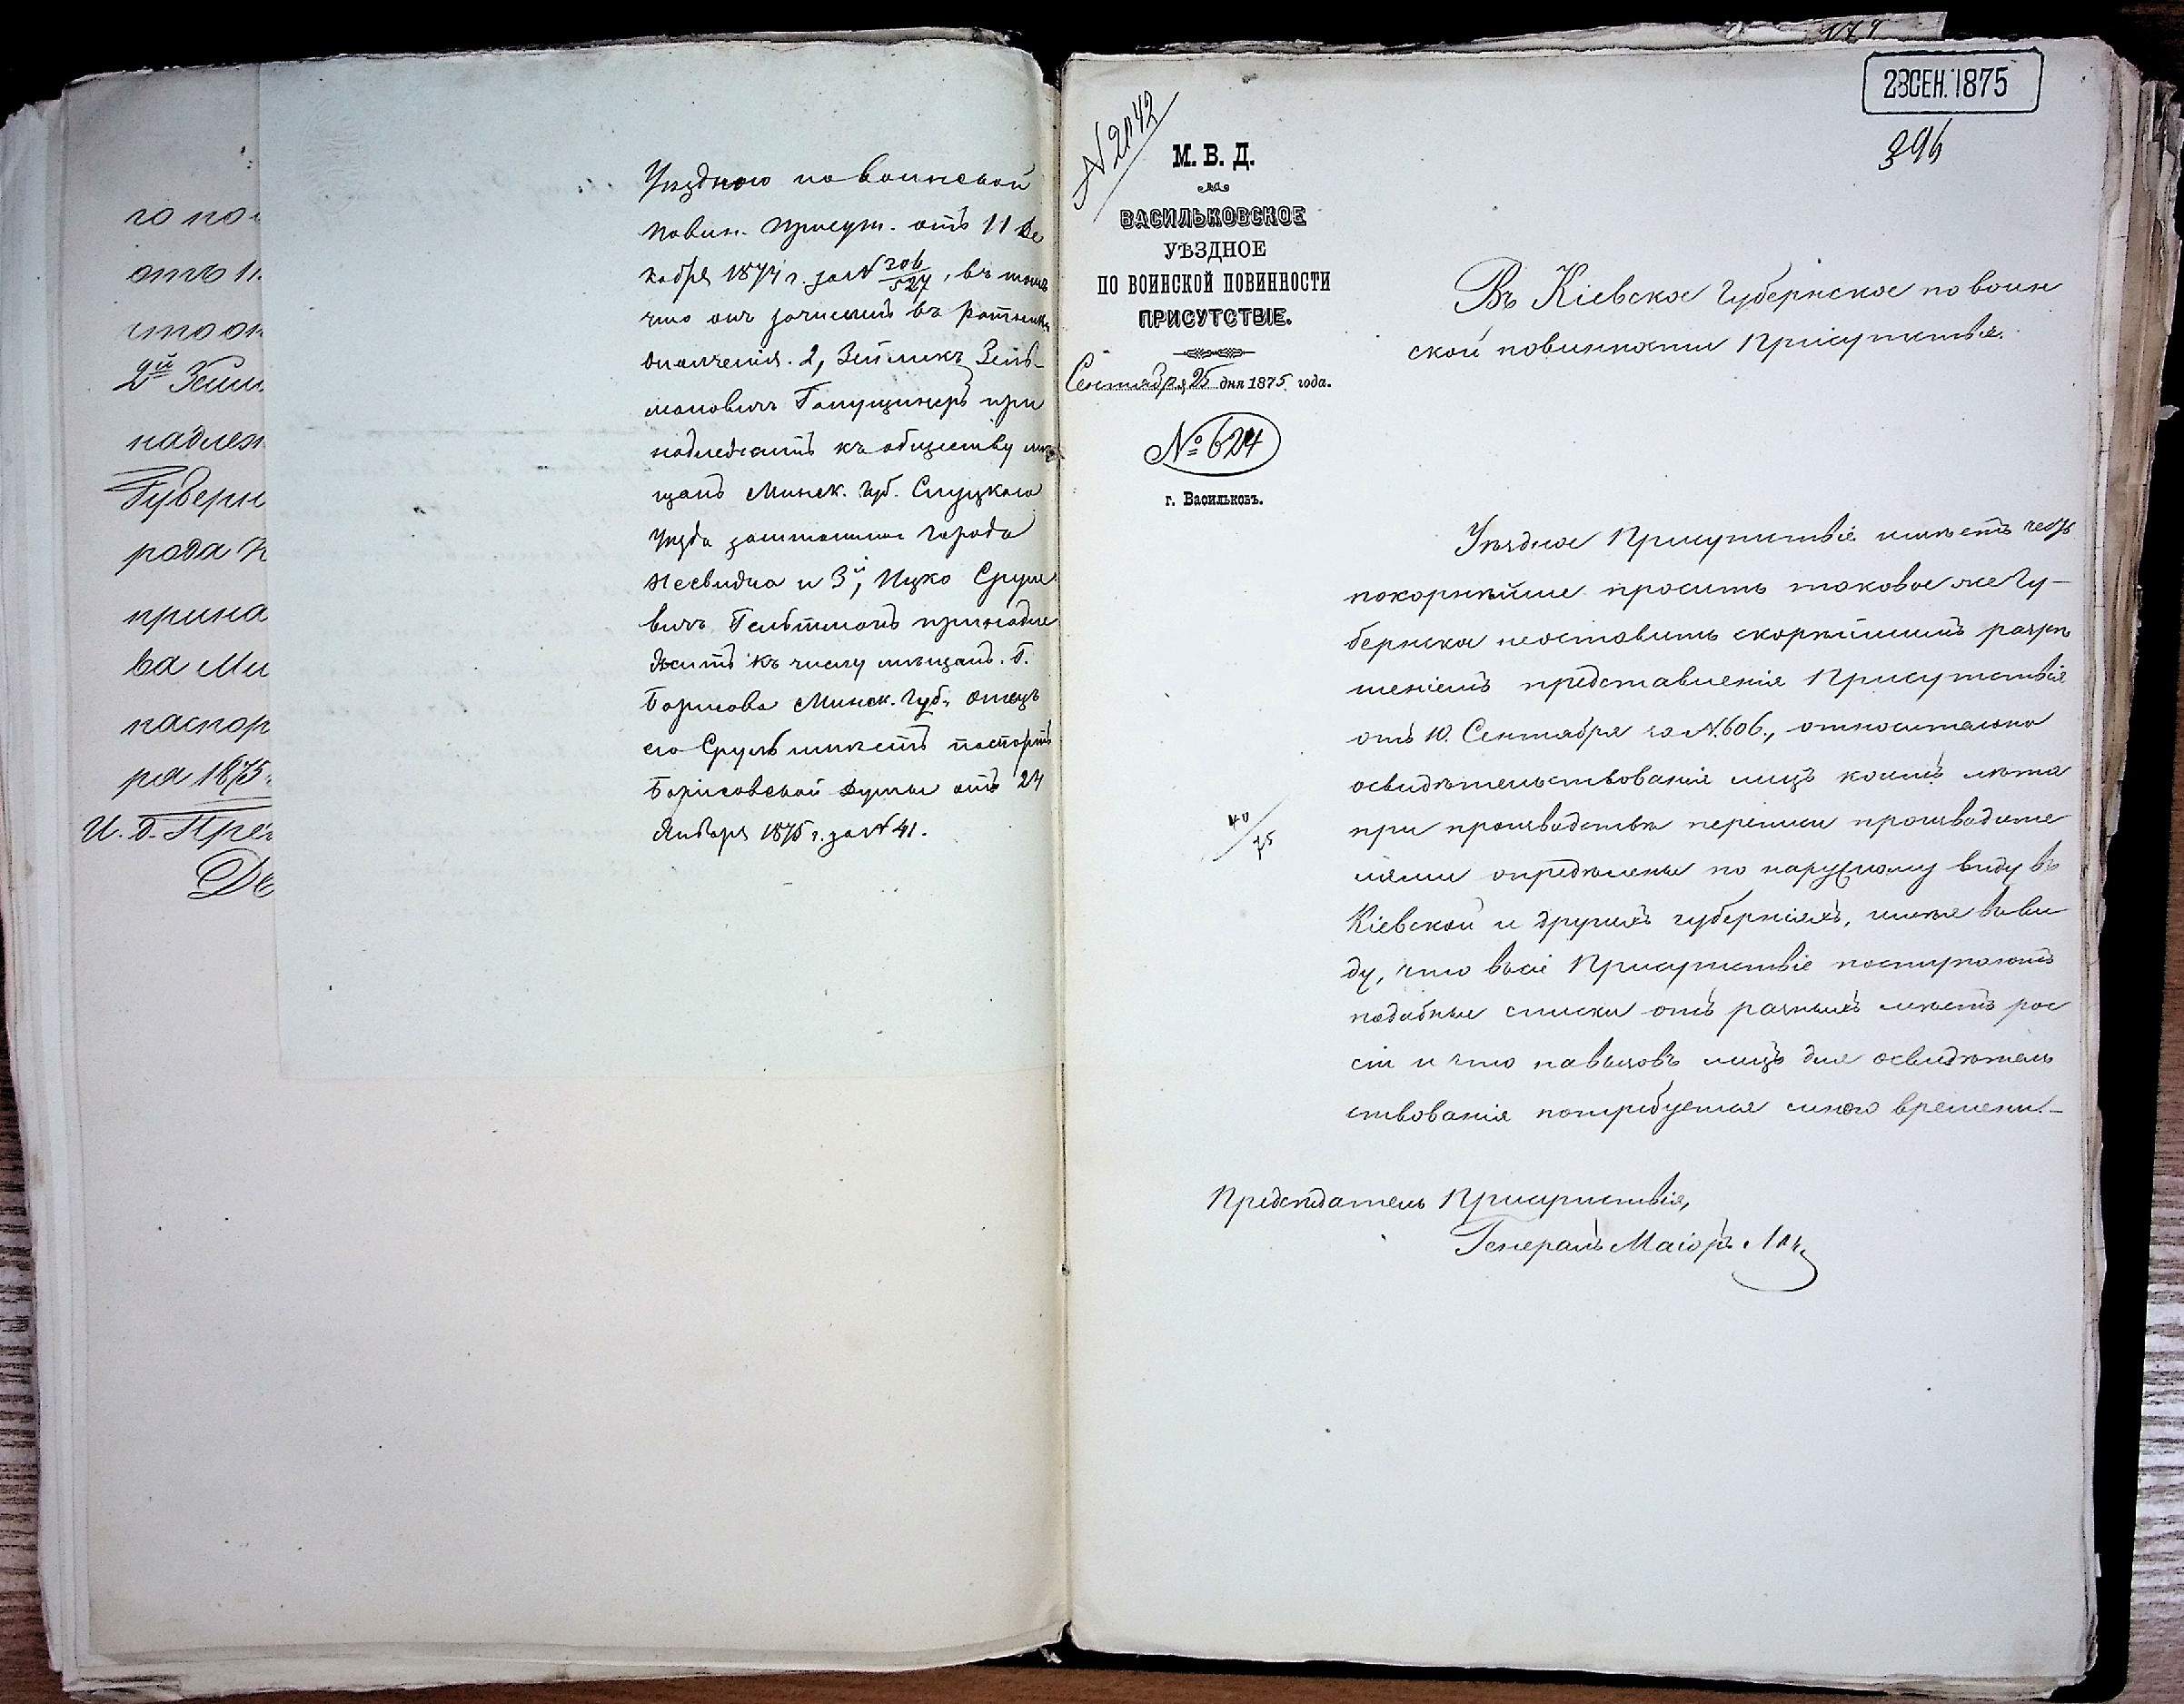 го по
отъ 11
что он
2й Зели
надлеж
Губерн
рода Н
прина
ва Ми
паспор
ря 1875
И. д. Пре
Уѣздного по воинской
повин. присут. отъ 11 де
кабря 1874 г. за № 306/527, въ томъ
что онъ зачисленъ въ ратники
ополченія. 2, Зеликъ Зель
мановичъ при
надлежитъ къ обществу мѣ
щанъ Минск. Губ. Слуцкаго
уѣзда заштатного города
Несвижа и 3й, Ицко Сруле
вичъ Гельтманъ принадле
житъ къ числу мѣщанъ. Г.
Борисова Минск. Губ., отецъ
его Сруль имѣетъ паспортъ
Борисовской думы отъ 24
Января 1875 г. за № 41.
179
28 СЕН. 1875
396
№ 2042
М. В. Д.
ВАСИЛЬКОВСКОЕ
УѢЗДНОЕ
ПО ВОИНСКОЙ ПОВИННОСТИ
ПРИСУТСТВІЕ.
Сентября 25 дня 1875 года.
№ 624
г. Васильковъ.
Въ Кіевское Губернское по воин
ской повинности Присутствіе.
Уѣздное Присутствіе имѣетъ честь
покорнѣйше просить таковое же Гу-
бернское неоставить скорѣйшимъ разрѣ
шеніемъ представленія Присутствія
отъ 10. Сентября за №. 606., относительно
освидѣтельствованія лицъ коимъ лѣта
40/75
при производствѣ переписи производите
лями опредѣлены по наружному виду въ
Кіевской и другихъ губерніяхъ, имѣя въ ви
ду, что въ сіе Присутствіе поступаютъ
подобные списки отъ разныхъ мѣстъ рос
сіи и что на вызовъ лицъ для освидѣтель
ствованія потребуется много времени.-
Предсѣдатель Присутствія,
Генералъ Маіоръ